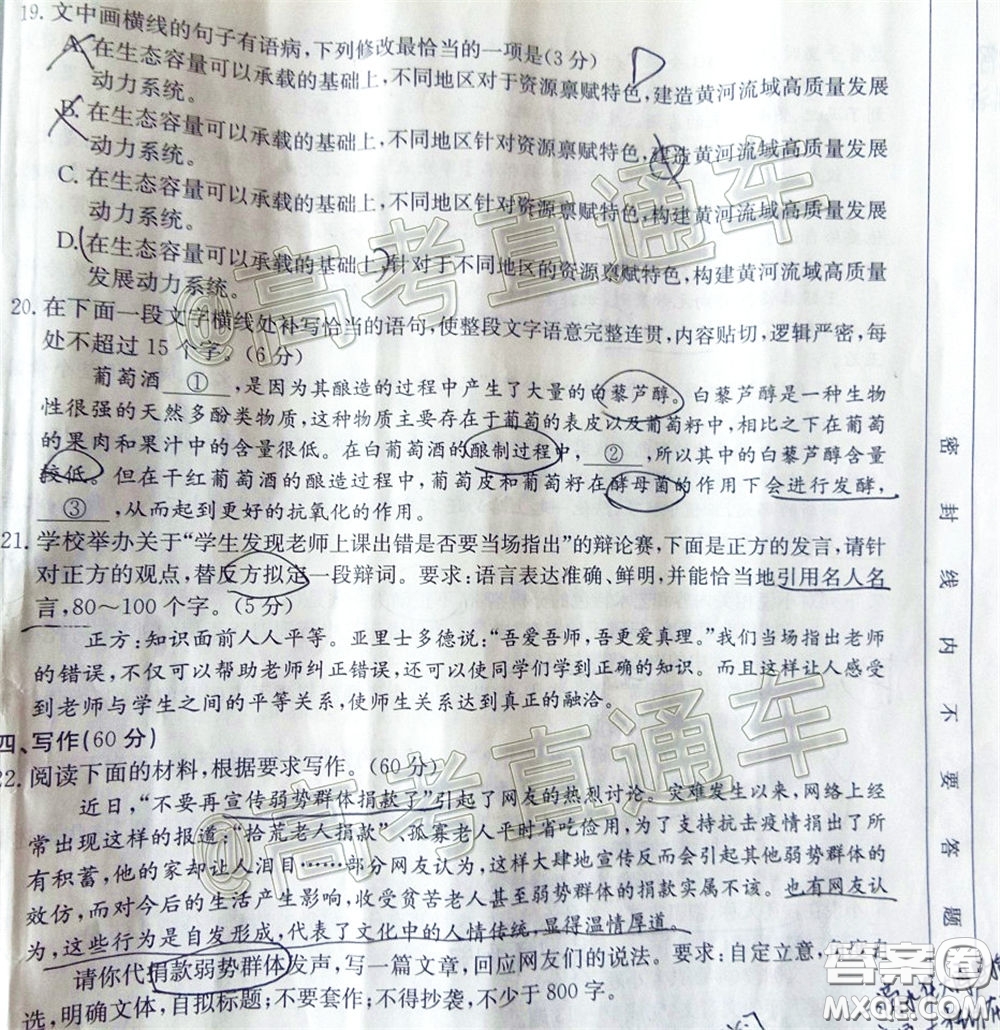 19. 文中画横线的句子有语病,下列修改最恰当的一项是(3分)
A. 在生态容量可以承载的基础上,不同地区对于资源禀赋特色,建造黄河流域高质量发展
动力系统。
B. 在生态容量可以承载的基础上,不同地区针对资源禀赋特色,建造黄河流域高质量发展
动力系统。
C. 在生态容量可以承载的基础上,不同地区针对资源禀赋特色,构建黄河流域高质量发展
动力系统。
D. 在生态容量可以承载的基础上,针对于不同地区的资源禀赋特色,构建黄河流域高质量
发展动力系统。
20. 在下面一段文字横线处补写恰当的语句,使整段文字语意完整连贯,内容贴切,逻辑严密,每
处不超过15个字。(6分)
葡萄酒 ① ,是因为其酿造的过程中产生了大量的白藜芦醇。白藜芦醇是一种生物
性很强的天然多酚类物质,这种物质主要存在于葡萄的表皮以及葡萄籽中,相比之下在葡萄
的果肉和果汁中的含量很低。在白葡萄酒的酿制过程中, ② ,所以其中的白藜芦醇含量
较低。但在干红葡萄酒的酿造过程中,葡萄皮和葡萄籽在酵母菌的作用下会进行发酵,
③ ,从而起到更好的抗氧化的作用。
21. 学校举办关于“学生发现老师上课出错是否要当场指出”的辩论赛,下面是正方的发言,请针
对正方的观点,替反方拟定一段辩词。要求:语言表达准确、鲜明,并能恰当地引用名人名
言,80~100个字。(5分)
正方:知识面前人人平等。亚里士多德说:“吾爱吾师,吾更爱真理。”我们当场指出老师
的错误,不仅可以帮助老师纠正错误,还可以使同学们学到正确的知识。而且这样让人感受
到老师与学生之间的平等关系,使师生关系达到真正的融洽。
四、写作(60分)
22. 阅读下面的材料,根据要求写作。(60分)
近日,“不要再宣传弱势群体捐款了”引起了网友的热烈讨论。灾难发生以来,网络上经
常出现这样的报道:“拾荒老人捐款”、孤寡老人平时省吃俭用,为了支持抗击疫情捐出了所
有积蓄,他的家却让人泪目……部分网友认为,这样大肆地宣传反而会给其他弱势群体造成
效仿,而对今后的生活产生影响,收受贫苦老人甚至弱势群体的捐款实属不该。也有网友认
为,这些行为是自发形成,代表了文化中的人情传统,显得温情厚道。
请你代捐款弱势群体发声,写一篇文章,回应网友们的说法。要求:自定立意,
选,明确文体,自拟标题;不要套作;不得抄袭,不少于800字。
密封线内不要答题
@高考直通车
@高考直通车
答案圈
MXQE.COM